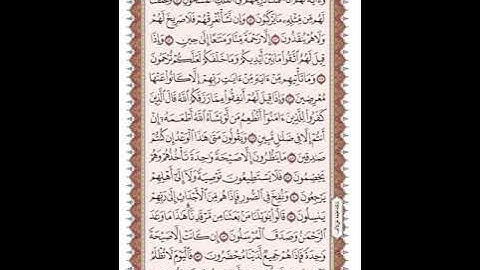 لَهُم مِّن مِّثْلِهِۦ مَا يَرْكَبُونَ ۝ وَإِن نَّشَأْ نُغْرِقْهُمْ فَلَا صَرِيخَ لَهُمْ
وَلَا هُمْ يُنقَذُونَ ۝ إِلَّا رَحْمَةً مِّنَّا وَمَتَٰعًا إِلَىٰ حِينٍ ۝ وَإِذَا
قِيلَ لَهُمُ ٱتَّقُوا۟ مَا بَيْنَ أَيْدِيكُمْ وَمَا خَلْفَكُمْ لَعَلَّكُمْ تُرْحَمُونَ
۝ وَمَا تَأْتِيهِم مِّنْ ءَايَةٍ مِّنْ ءَايَٰتِ رَبِّهِمْ إِلَّا كَانُوا۟ عَنْهَا
مُعْرِضِينَ ۝ وَإِذَا قِيلَ لَهُمْ أَنفِقُوا۟ مِمَّا رَزَقَكُمُ ٱللَّهُ قَالَ ٱلَّذِينَ
كَفَرُوا۟ لِلَّذِينَ ءَامَنُوٓا۟ أَنُطْعِمُ مَن لَّوْ يَشَآءُ ٱللَّهُ أَطْعَمَهُۥٓ إِنْ
أَنتُمْ إِلَّا فِى ضَلَٰلٍ مُّبِينٍ ۝ وَيَقُولُونَ مَتَىٰ هَٰذَا ٱلْوَعْدُ إِن كُنتُمْ
صَٰدِقِينَ ۝ مَا يَنظُرُونَ إِلَّا صَيْحَةً وَٰحِدَةً تَأْخُذُهُمْ وَهُمْ
يَخِصِّمُونَ ۝ فَلَا يَسْتَطِيعُونَ تَوْصِيَةً وَلَآ إِلَىٰٓ أَهْلِهِمْ
يَرْجِعُونَ ۝ وَنُفِخَ فِى ٱلصُّورِ فَإِذَا هُم مِّنَ ٱلْأَجْدَاثِ إِلَىٰ رَبِّهِمْ
يَنسِلُونَ ۝ قَالُوا۟ يَٰوَيْلَنَا مَنۢ بَعَثَنَا مِن مَّرْقَدِنَا هَٰذَا مَا وَعَدَ
ٱلرَّحْمَٰنُ وَصَدَقَ ٱلْمُرْسَلُونَ ۝ إِن كَانَتْ إِلَّا صَيْحَةً
وَٰحِدَةً فَإِذَا هُمْ جَمِيعٌ لَّدَيْنَا مُحْضَرُونَ ۝ فَٱلْيَوْمَ لَا تُظْلَمُ